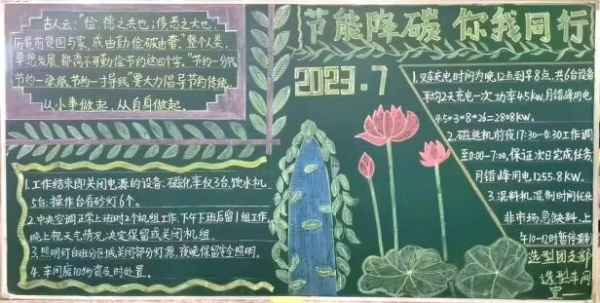 古人云："俭,德之共也;侈,恶之大也",
历览前贤国与家,成由勤俭破由奢。"整个人类,
要想发展,都离不开勤俭节约这四个字。"节约一分钱
节约一张纸,节约一寸导线"要大力倡导节约传统。
从小事做起,从自身做起。
1.工作结束即关闭电源的设备:磁化率仪3台,饮水机
5台,操作台看砂灯6个。
2.中央空调正常上班时2个机组工作,下午下班后留1组工作,
晚上视天气情况决定保留或关闭机组。
3.照明灯白班分区域关闭部分灯源,夜晚保留安全照明。
4.车间废旧物资及时处置。
节能降碳 你我同行
2023.7
1.叉车充电时间为晚12点到早8点,共6台设备
平均2天充电一次,功率4.5kw,月错峰用电
4.5*3*8*26=2808kw。
2.磁选机前夜17:30-0:30工作调
至0:00-7:00,保证次日完成任务
月错峰用电1255.8kw。
3.混料机混制时间优化
非市场急缺料,上
午10-12时暂停混制
造型团支部
造型车间
宣